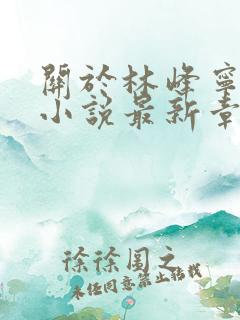 關於林峰寧
小說最新章
徐徐圖之
未经同意禁止转载